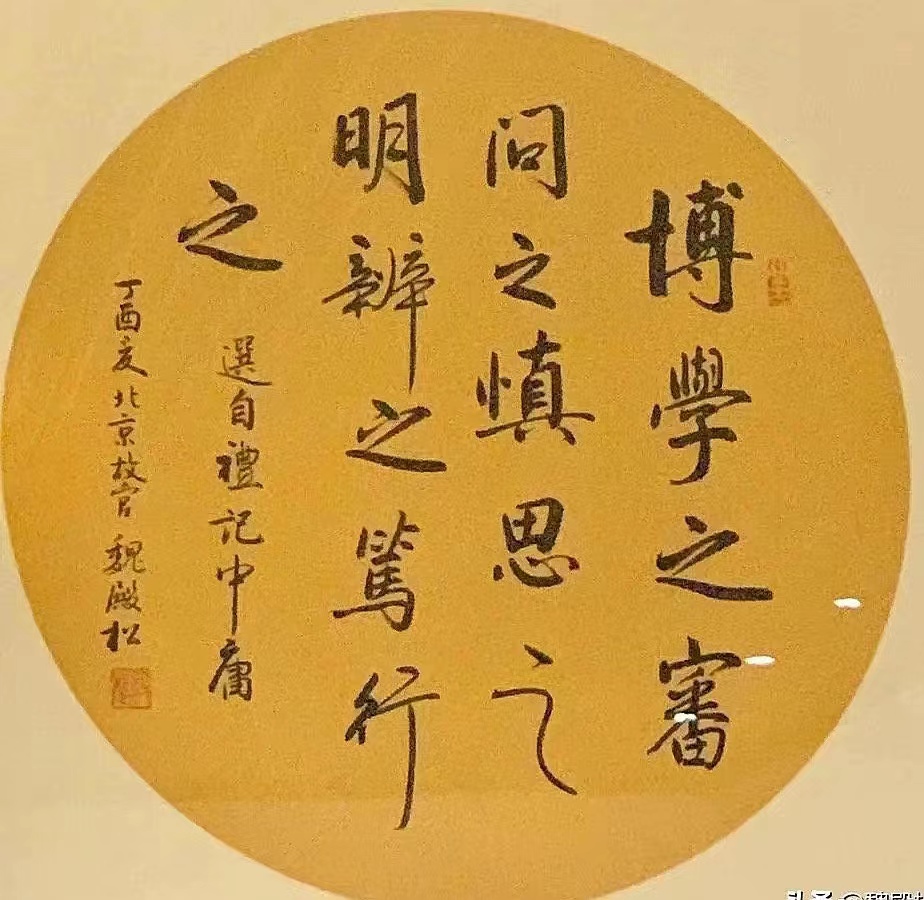 博學之審
問之慎思之
明辨之篤行
之
選自禮記中庸
丁酉夏北京故宮魏殿松